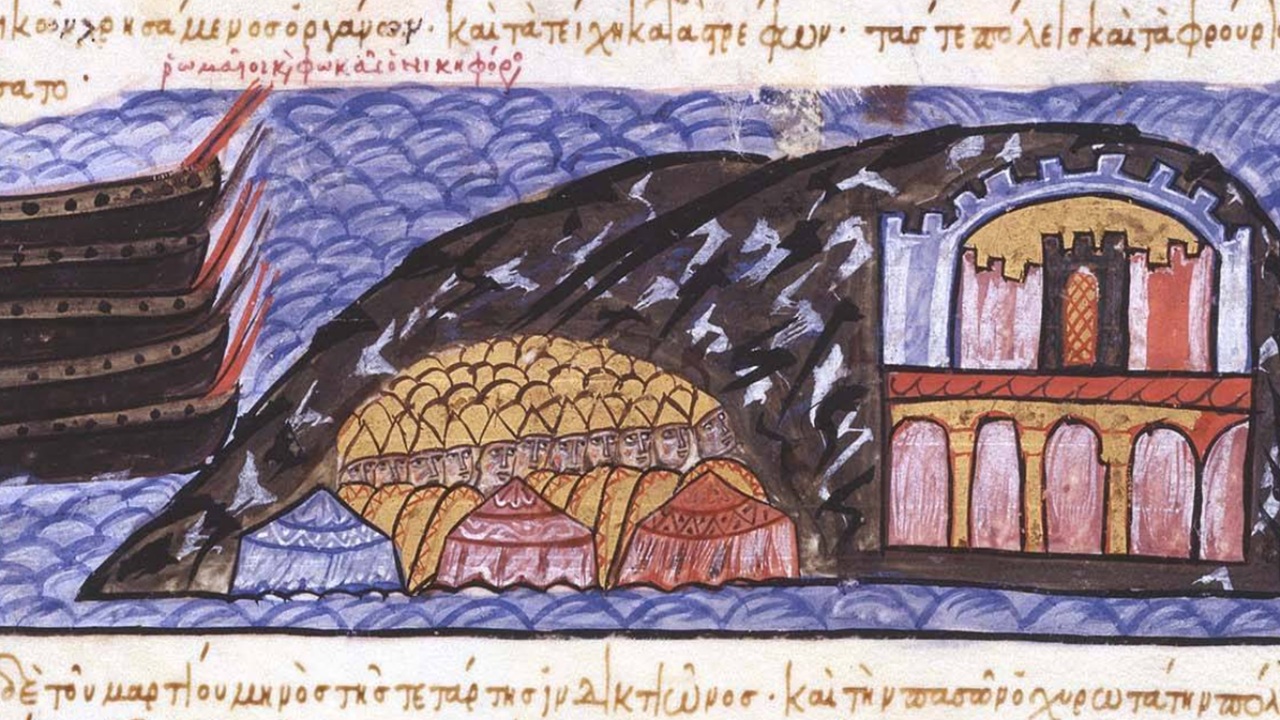 χρησάμενος ὀργάνων· καὶ τὰ τείχη καταστρέφων· τάς τε πόλεις καὶ τὰ φρούρι
στατο·
ῥωμαῖοι κ φωκᾶς ὁ νικηφόρος
δὲ τοῦ μαρτίου μηνὸς τῆς τετάρτης ἰνδικτιῶνος· καὶ τὴν πασῶν ὀχυρωτάτην πόλ